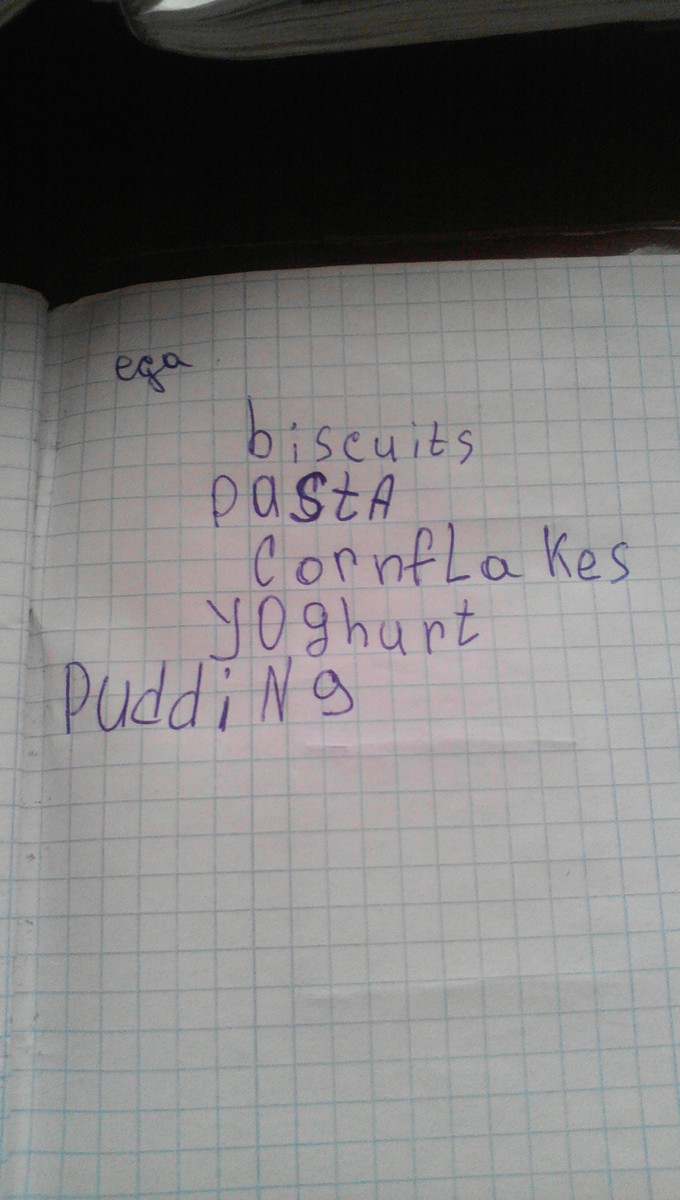 еда
biscuits
pastA
CornfLakes
yOghurt
PuddiNg